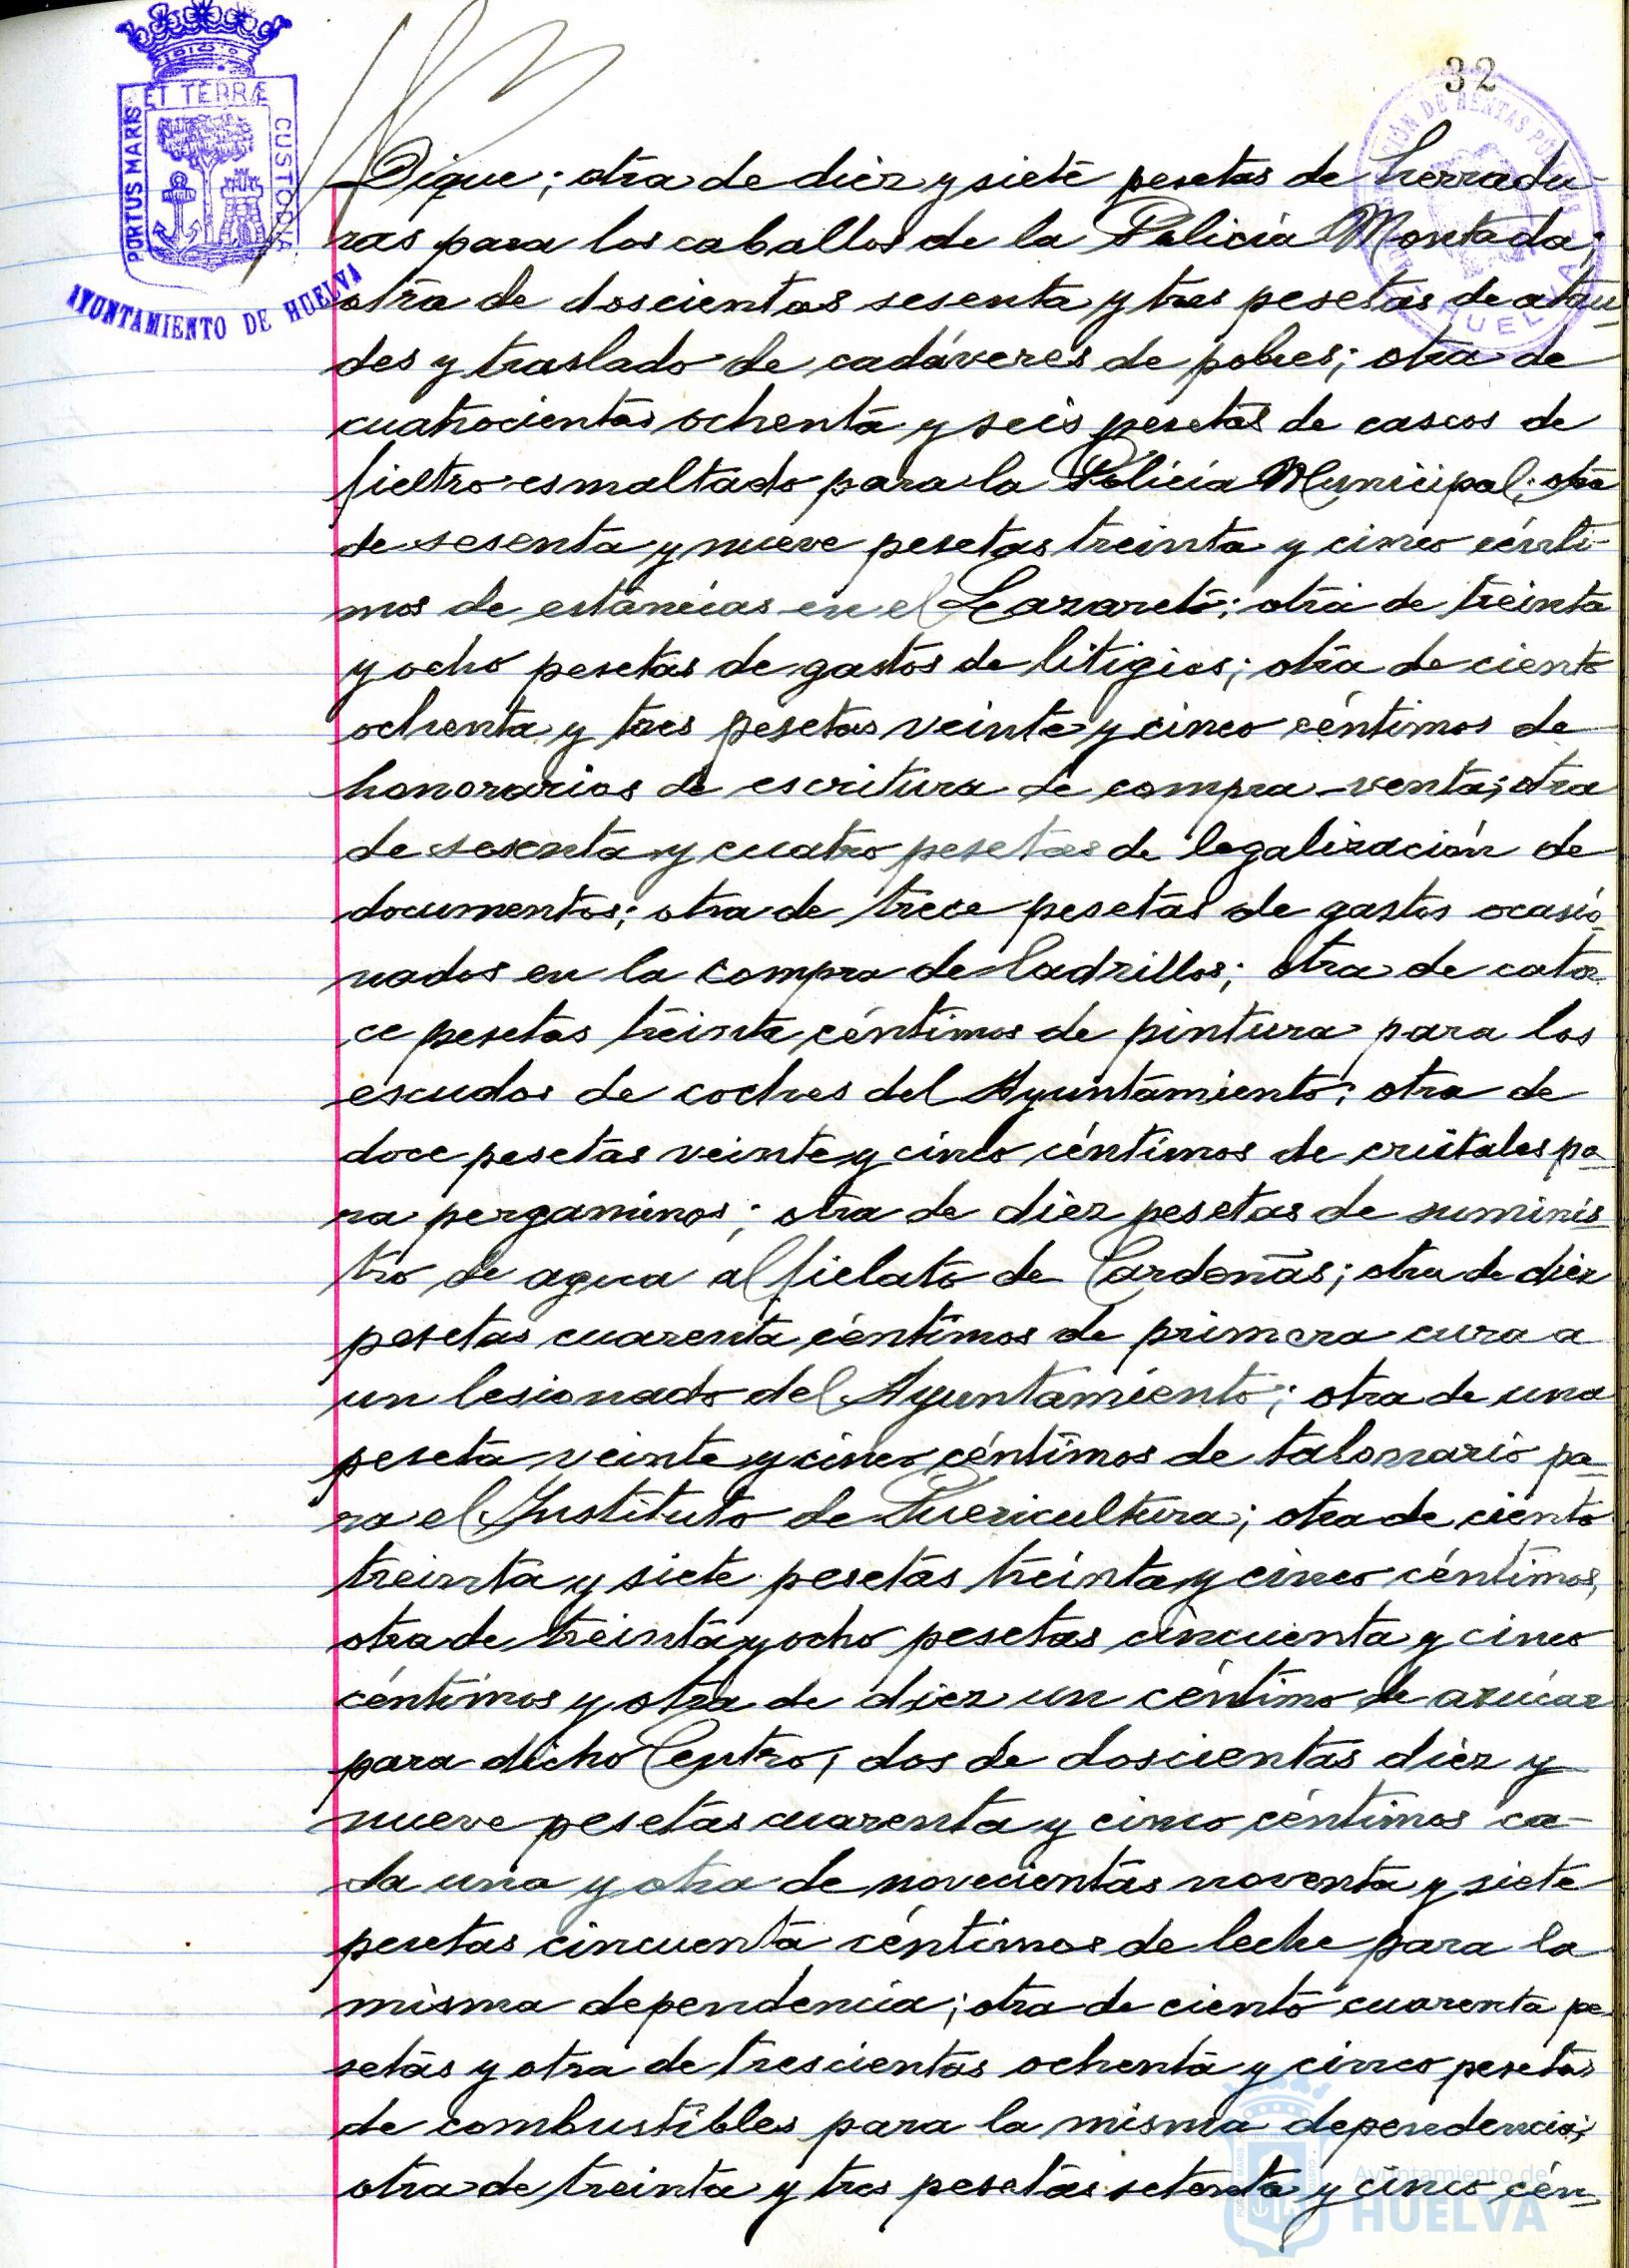 32
PORTUS MARIS ET TERRÆ CUSTODIA
AYUNTAMIENTO DE HUELVA
Dique; otra de diez y siete pesetas de herradu-
ras para los caballos de la Policía Montada;
otra de doscientas sesenta y tres pesetas de atau-
des y traslado de cadáveres de pobres; otra de
cuatrocientas ochenta y seis pesetas de cascos de
fieltro esmaltado para la Policía Municipal; otra
de sesenta y nueve pesetas treinta y cinco cénti-
mos de estáncias en el Lazareto; otra de treinta
y ocho pesetas de gastos de litigios; otra de ciento
ochenta y tres pesetas veinte y cinco céntimos de
honorarios de escritura de compra-venta; otra
de sesenta y cuatro pesetas de legalización de
documentos; otra de trece pesetas de gastos ocasio-
nados en la compra de ladrillos; otra de cator-
ce pesetas treinta céntimos de pintura para los
escudos de coches del Ayuntamiento; otra de
doce pesetas veinte y cinco céntimos de cristales pa-
ra pergaminos; otra de diez pesetas de suminis-
tro de agua al fielato de Cardeñas; otra de diez
pesetas cuarenta céntimos de primera cura a
un lesionado del Ayuntamiento; otra de una
peseta veinte y cinco céntimos de talonario pa-
ra el Instituto de Puericultura; otra de ciento
treinta y siete pesetas treinta y cinco céntimos,
otra de treinta y ocho pesetas cincuenta y cinco
céntimos y otra de diez un céntimo de azúcar
para dicho Centro; dos de doscientas diez y
nueve pesetas cuarenta y cinco céntimos ca-
da una y otra de novecientas noventa y siete
pesetas cincuenta céntimos de leche para la
misma dependencia; otra de ciento cuarenta pe-
setas y otra de trescientas ochenta y cinco pesetas
de combustibles para la misma dependencia;
otra de treinta y tres pesetas setenta y cinco cén-
Ayuntamiento de
HUELVA